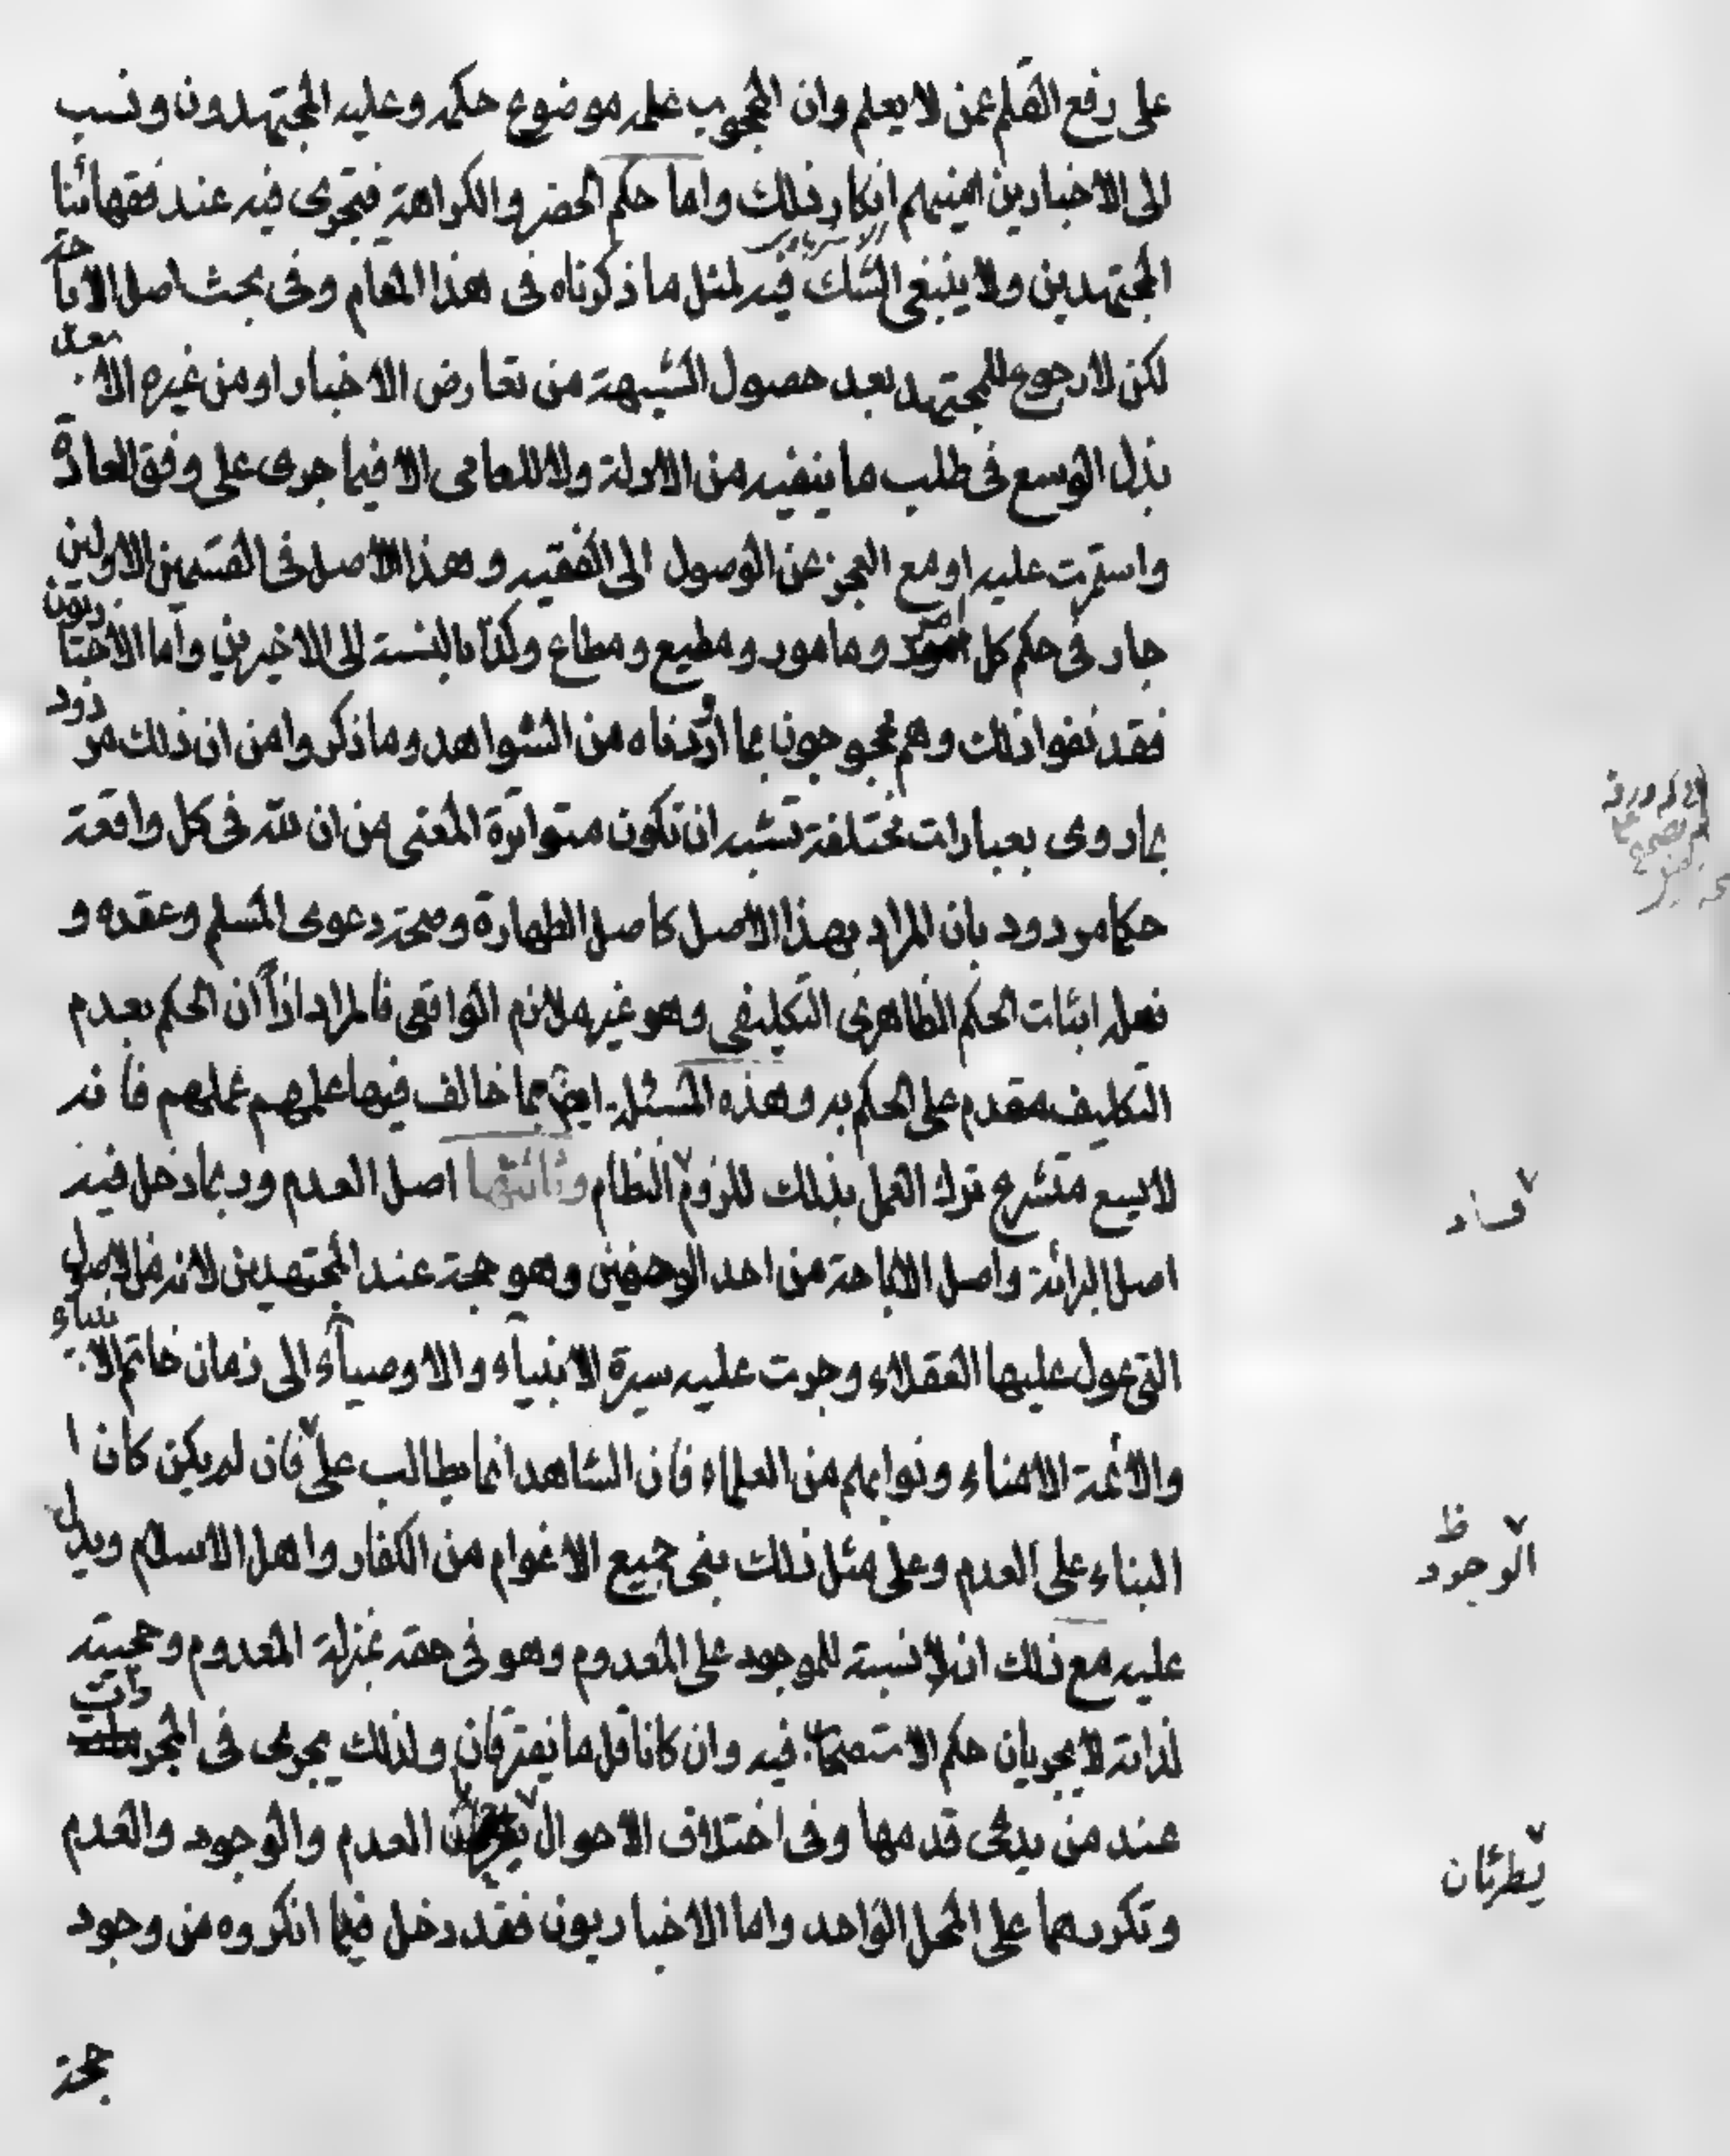 على رفع القلم عمن لا يعلم وان المحجوب علمه موضوع حكمه وعليه المجتهدون ونسب
الى الاخباريين امينيهم انكار ذلك واما حكم الحضر والكراهة فيجرى فيه عند فقهائنا
المجتهدين ولا ينبغى الشك فيه لمثل ما ذكرناه فى هذا المقام وفى بحث اصل الاباحة
لكن لا رجوع للمجتهد بعد حصول الشبهة من تعارض الاخبار او من غيره الا بعد
بذل الوسع فى طلب ما ينفيه من الادلة ولا للعامى الا فيما جرى على وفق العادة
واستمرت عليه او مع العجز عن الوصول الى الفقيه وهذا الاصل فى القسمين الاولين
جار فى حكم كل امر ومامور ومطيع ومطاع وكذا بالنسبة الى الاخيرين واما الاخباريون
فقد نفوا ذلك وهم محجوجون بما اوردناه من الشواهد وما ذكروا من ان ذلك مردود
بما روى بعبارات مختلفة تشبه ان تكون متواترة المعنى من ان لله فى كل واقعة
حكما مردود بان المراد بهذا الاصل كاصل الطهارة وصحة دعوى المسلم وعقده و
فعله اثبات الحكم الظاهرى التكليفى وهو غير ملازم الواقعى فالمراد اذاً ان الحكم بعدم
التكليف مقدم على الحكم به وهذه المسئلة ايضا مما خالف فيها علمهم عملهم فانه
لا يسع متشرع ترك العمل بذلك للزوم النظام وثالثها اصل العدم وربما دخل فيه
فساد
اصل البرائة واصل الاباحة من احد الوجهين وهو حجة عند المجتهدين لانه من الاصول
التى عول عليها العقلاء وجرت عليه سيرة الانبياء والاوصياء الى زمان خاتم الانبياء
والائمة الامناء ونوابهم من العلماء فان الشاهد انما يطالب على فان لم يكن كان ا
الوجود ظ
البناء على العدم وعلى مثل ذلك بنى جميع الاغوام من الكفار واهل الاسلام ويدل
عليه مع ذلك انه لا نسبة للموجود على المعدوم وهو فى حقه بمنزلة المعدوم وحجيته
لذاته لا بجريان حكم الاستصحاب فيه وان كانا قل ما يفترقان ولذلك يجرى فى المجردات
عند من يدعى قدمها وفى اختلاف الاحوال العدم والوجود والعدم
يطرئان
وتكررهما على المحل الواحد واما الاخباريون فقد دخل فيما انكروه من وجود
حجة